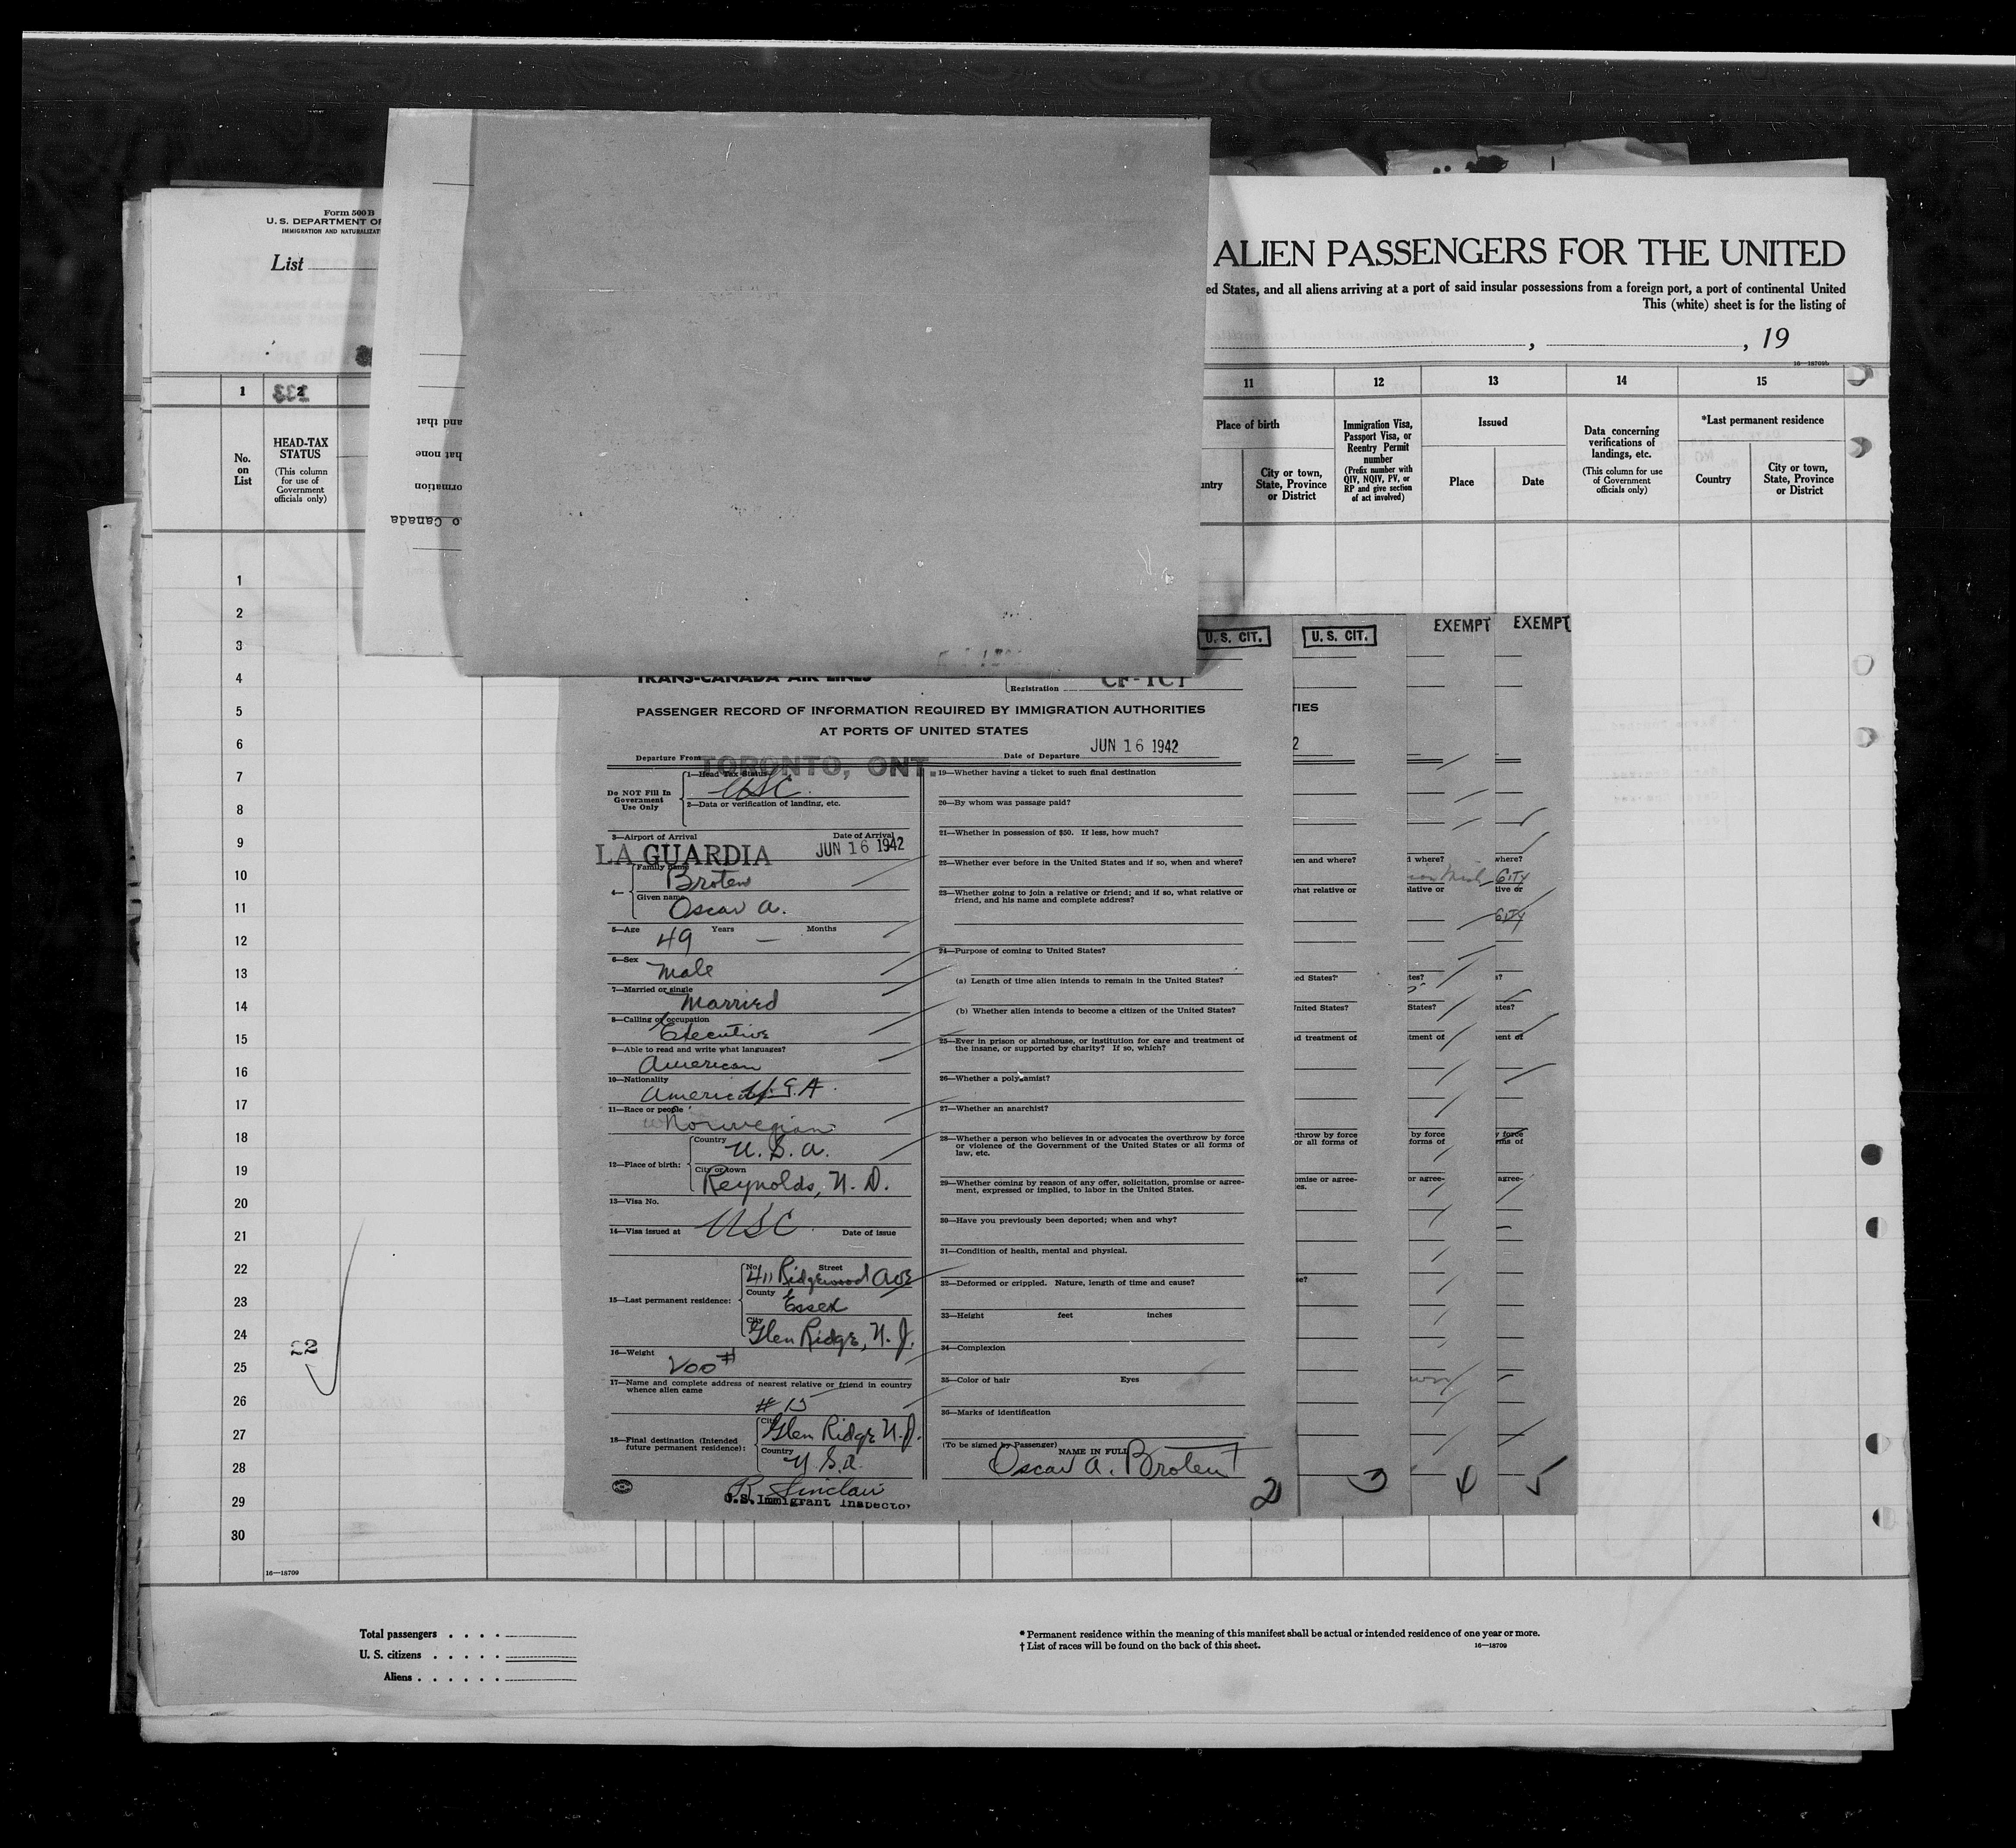 Form 500 B
U. S. DEPARTMENT OF
IMMIGRATION AND NATURALIZAT
List
ALIEN PASSENGERS FOR THE UNITED
ed States, and all aliens arriving at a port of said insular possessions from a foreign port, a port of continental United
This (white) sheet is for the listing of
, , 19
1 2 11 12 13 14 15
No. on List
HEAD-TAX STATUS
(This column for use of Government officials only)
and that
hat none
ormation
o Canada
Place of birth
ntry
City or town, State, Province or District
Immigration Visa, Passport Visa, or Reentry Permit number
(Prefix number with QIV, NQIV, PV, or RP and give section of act involved)
Issued
Place
Date
Data concerning verifications of landings, etc.
(This column for use of Government officials only)
*Last permanent residence
Country
City or town, State, Province or District
1
2
3
4
5
6
7
8
9
10
11
12
13
14
15
16
17
18
19
20
21
22
23
24
25
26
27
28
29
30
22
16—18709
U. S. CIT.
U. S. CIT.
EXEMPT
EXEMPT
TRANS-CANADA AIR LINES
Registration CF-TCT
PASSENGER RECORD OF INFORMATION REQUIRED BY IMMIGRATION AUTHORITIES
AT PORTS OF UNITED STATES
Departure From TORONTO, ONT.
Date of Departure JUN 16 1942
Do NOT Fill In Government Use Only
1—Head Tax Status
USC
2—Data or verification of landing, etc.
3—Airport of Arrival
Date of Arrival
LA GUARDIA
JUN 16 1942
4— Family name
Broten
Given name
Oscar A.
5—Age 49 Years — Months
6—Sex
Male
7—Married or single
Married
8—Calling or occupation
Executive
9—Able to read and write what languages?
American
10—Nationality
American U.S.A.
11—Race or people
Norwegian
12—Place of birth:
Country
U. S. A.
City or town
Reynolds, N. D.
13—Visa No.
14—Visa issued at USC Date of issue
15—Last permanent residence:
No. Street
411 Ridgewood Ave
County
Essex
City
Glen Ridge, N. J.
16—Weight
200 #
17—Name and complete address of nearest relative or friend in country whence alien came
# 15
18—Final destination (Intended future permanent residence):
City
Glen Ridge N. J.
Country
U. S. A.
R. Sinclair
U.S. Immigrant Inspector
19—Whether having a ticket to such final destination
20—By whom was passage paid?
21—Whether in possession of $50. If less, how much?
22—Whether ever before in the United States and if so, when and where?
23—Whether going to join a relative or friend; and if so, what relative or
friend, and his name and complete address?
24—Purpose of coming to United States?
(a) Length of time alien intends to remain in the United States?
(b) Whether alien intends to become a citizen of the United States?
25—Ever in prison or almshouse, or institution for care and treatment of
the insane, or supported by charity? If so, which?
26—Whether a polygamist?
27—Whether an anarchist?
28—Whether a person who believes in or advocates the overthrow by force
or violence of the Government of the United States or all forms of
law, etc.
29—Whether coming by reason of any offer, solicitation, promise or agree-
ment, expressed or implied, to labor in the United States.
30—Have you previously been deported; when and why?
31—Condition of health, mental and physical.
32—Deformed or crippled. Nature, length of time and cause?
33—Height feet inches
34—Complexion
35—Color of hair Eyes
36—Marks of identification
(To be signed by Passenger)
NAME IN FULL
Oscar A. Broten
2 3 4 5
Total passengers
U. S. citizens
Aliens
* Permanent residence within the meaning of this manifest shall be actual or intended residence of one year or more.
† List of races will be found on the back of this sheet.
16—18709